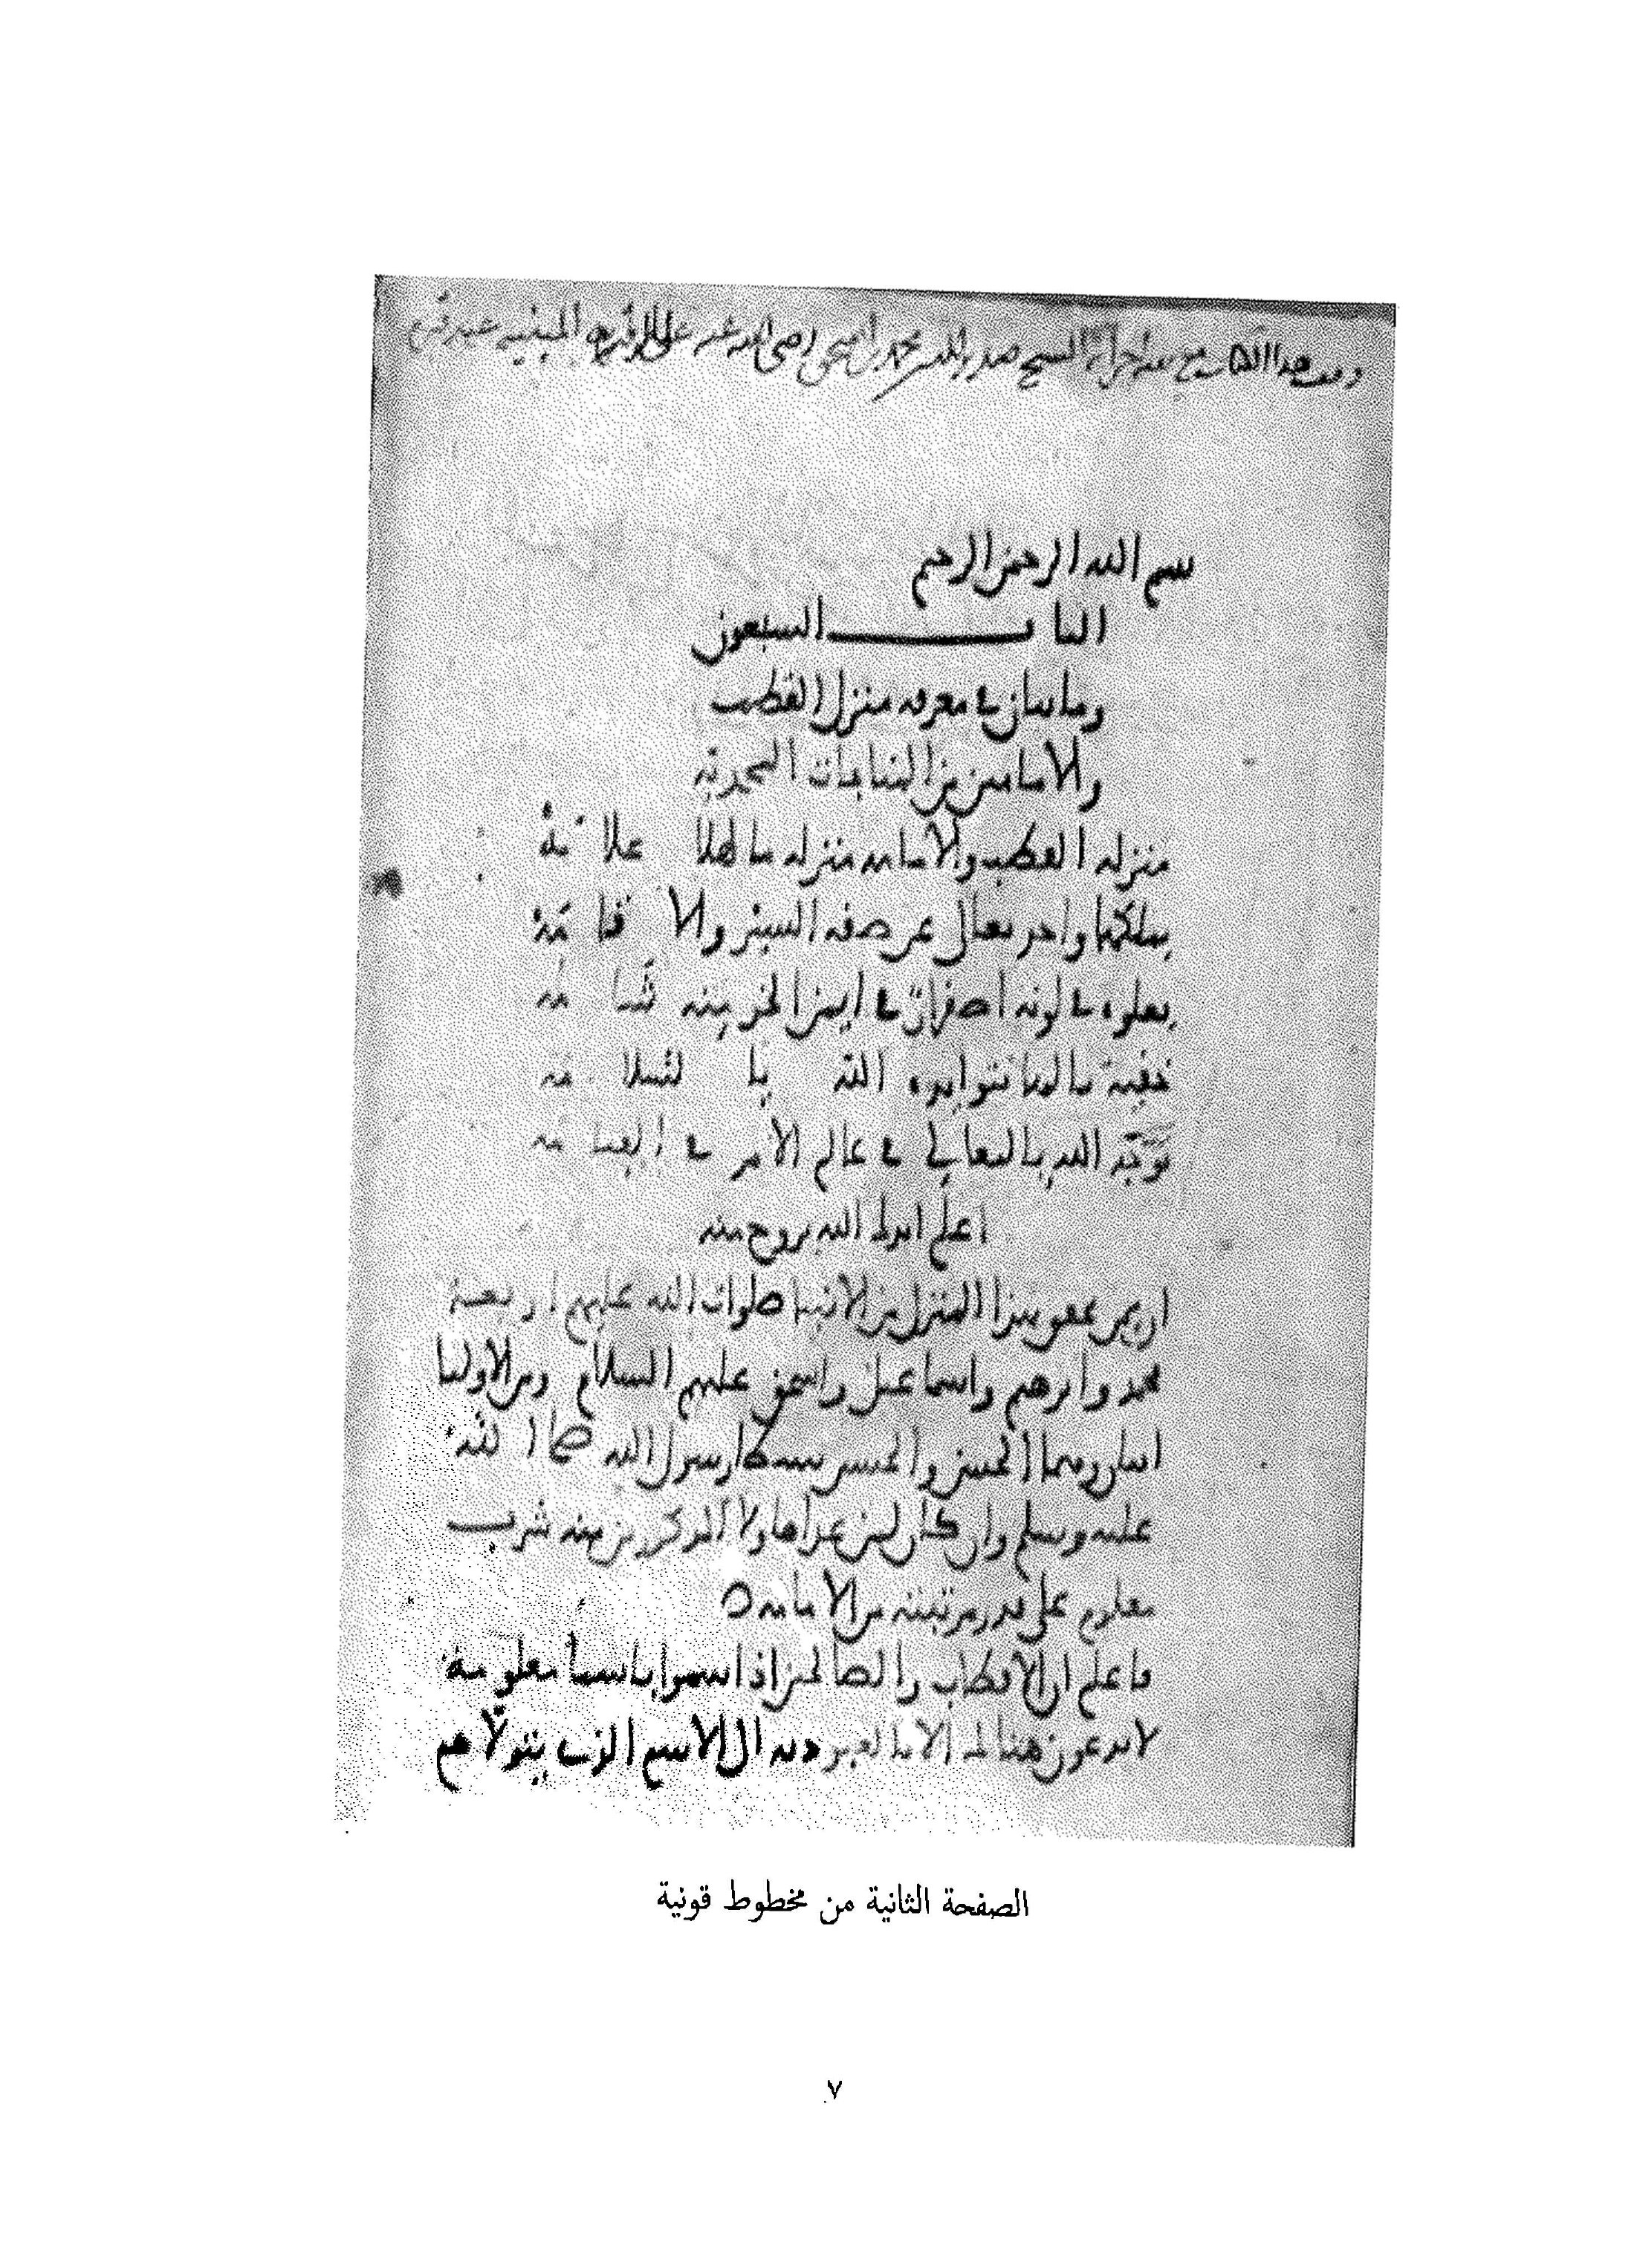 وقف هذا الكتاب مع بقية أجزائه الشيخ صدر الدين محمد بن إسحق رضي الله عنه على المبنية عند قبره
بسم الله الرحمن الرحيم
الباب السبعون
ومايتان في معرفه منزل القطب
والامامين من المناجات المحمدية
منزله القطب والامامه منزله ما لها علامة
يملكها واحد تعالى عن صفه السير والاقامة
يعلوه في لونه اصفرار في ايمن الخد منه شامه
خفية ما لها نتو ايده الله بالسلامه
توجه الله بالمعالي في عالم الامر في القيامه
اعلم ايدك الله بروح منه
ان ممن تحقق بهذا المنزل من الانبيا صلوات الله عليهم اربعة
محمد وابرهيم واسماعيل واسحق عليهم السلام ومن الاوليا
اثنان وهما الحسن والحسين سبطا رسول الله صلى الله
عليه وسلم وان كان لمن عدا هاولا المذكورين منه شرب
معلوم على قدر مرتبته من الامامه
فاعلم ان الاقطاب والصالحين اذا سموا باسما معلومة
لا يدعون هنالك الا بالعبوديه الى الاسم الذي يتولاهم
الصفحة الثانية من مخطوط قونية
٧